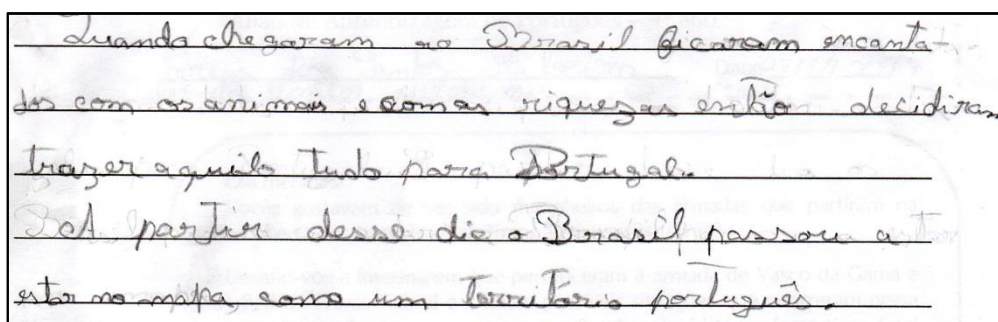 Quando chegaram ao Brasil ficaram encanta-
dos com os animais e com as riquezas então decidiram
trazer aquilo tudo para Portugal.
A partir desse dia o Brasil passou a
estar no mapa, como um território português.